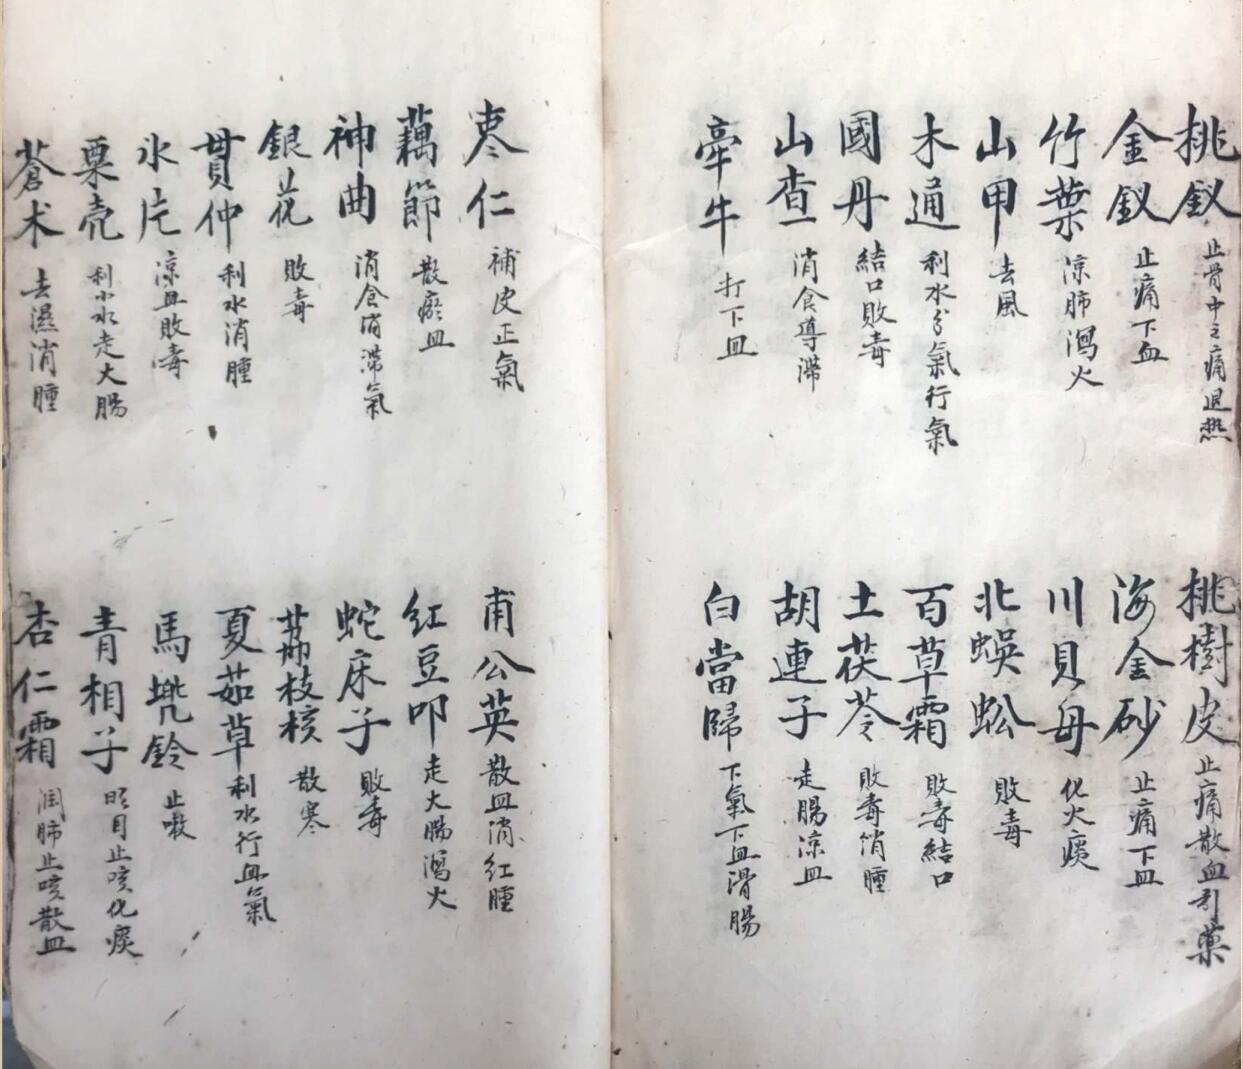 桃釵 止骨中之痛退熱
金釵 止痛下血
竹葉 凉肺瀉火
山甲 去風
木通 利水分氣行氣
國丹 結口敗毒
山查 消食導滞
牽牛 打下血
桃樹皮 止痛散血引藥
海金砂 止痛下血
川貝母 化火痰
北蜈蚣 敗毒
百草霜 敗毒結口
土茯苓 敗毒消腫
胡連子 走腸凉血
白當歸 下氣下血滑腸
枣仁 補皮正氣
藕節 散瘀血
神曲 消食消滞氣
銀花 敗毒
貫仲 利水消腫
氷片 凉血敗毒
粟壳 利小水走大腸
蒼术 去濕消腫
甫公英 散血消红腫
红豆叩 走大腸瀉火
蛇床子 敗毒
荔枝核 散寒
夏茹草 利水行血氣
馬兠鈴 止嗽
青相子 明目止咳化痰
杏仁霜 潤肺止咳散血